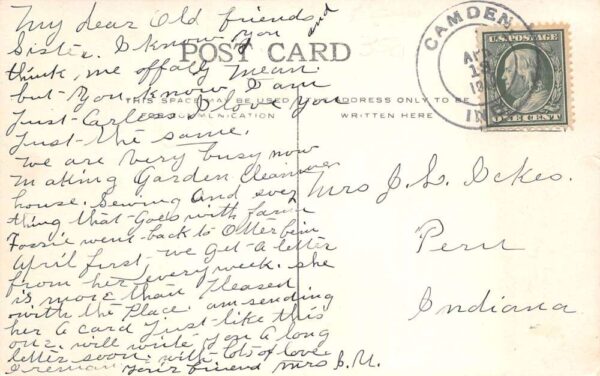 My dear Old friend and
Sister. I know you
think, me offaly mean.
but you know I am
Just Carless I love you
Just the same.
we are very busy now
making Garden cleaning
house. Sewing And every
thing that Goes with farm
Fossie went back to Otterbein
April first we get a letter
from her every week. she
is more than Pleased
with the Place. am sending
her a card Just like this
one. will write you a long
letter soon. with lots of love.
I remain your friend Mrs B.M.
POST CARD
THIS SPACE MAY BE USED
FOR COMMUNICATION
ADDRESS ONLY TO BE
WRITTEN HERE
CAMDEN
IND.
U.S. POSTAGE
ONE CENT
Mrs J. L. Ickes.
Peru
Indiana